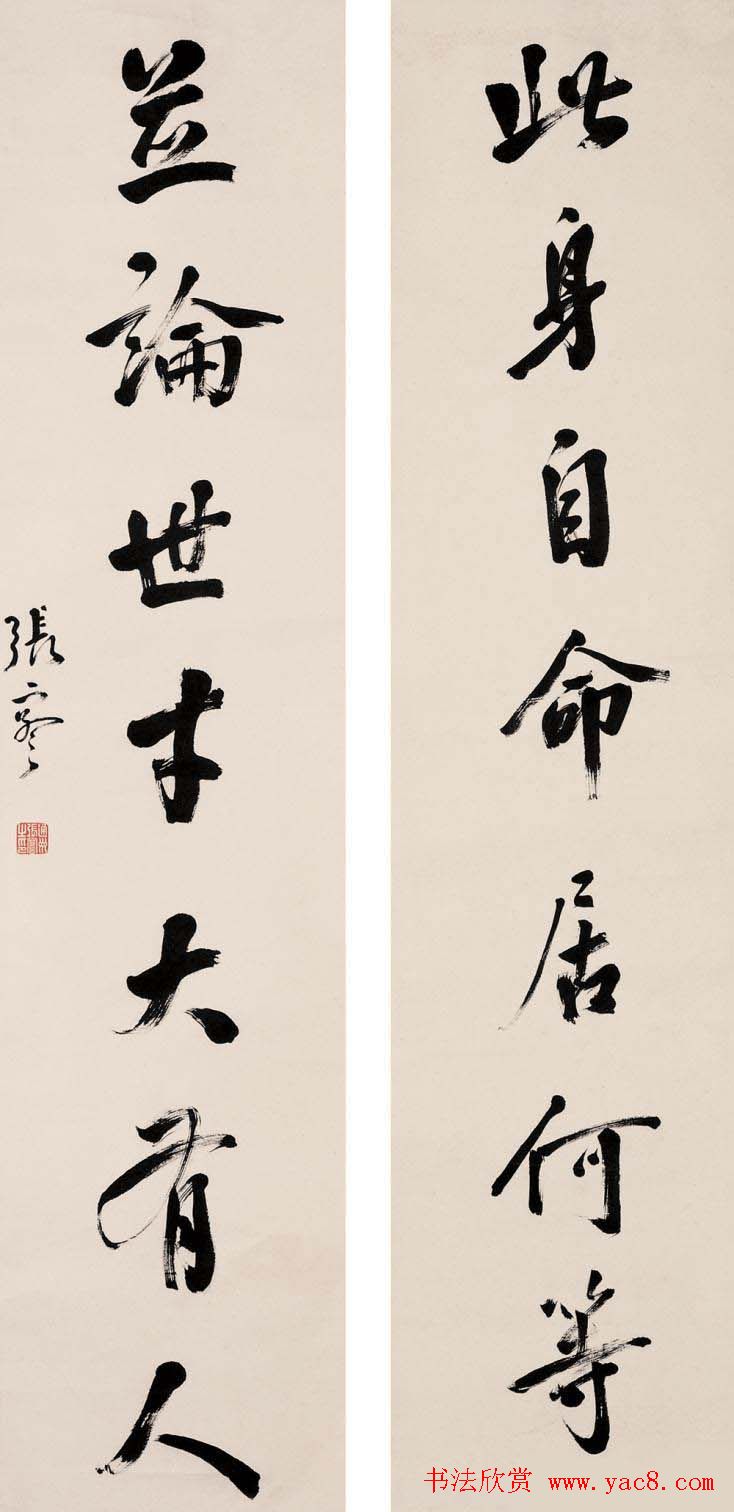 此身自命居何等
並論世才大有人
張謇
书法欣赏 www.yac8.com